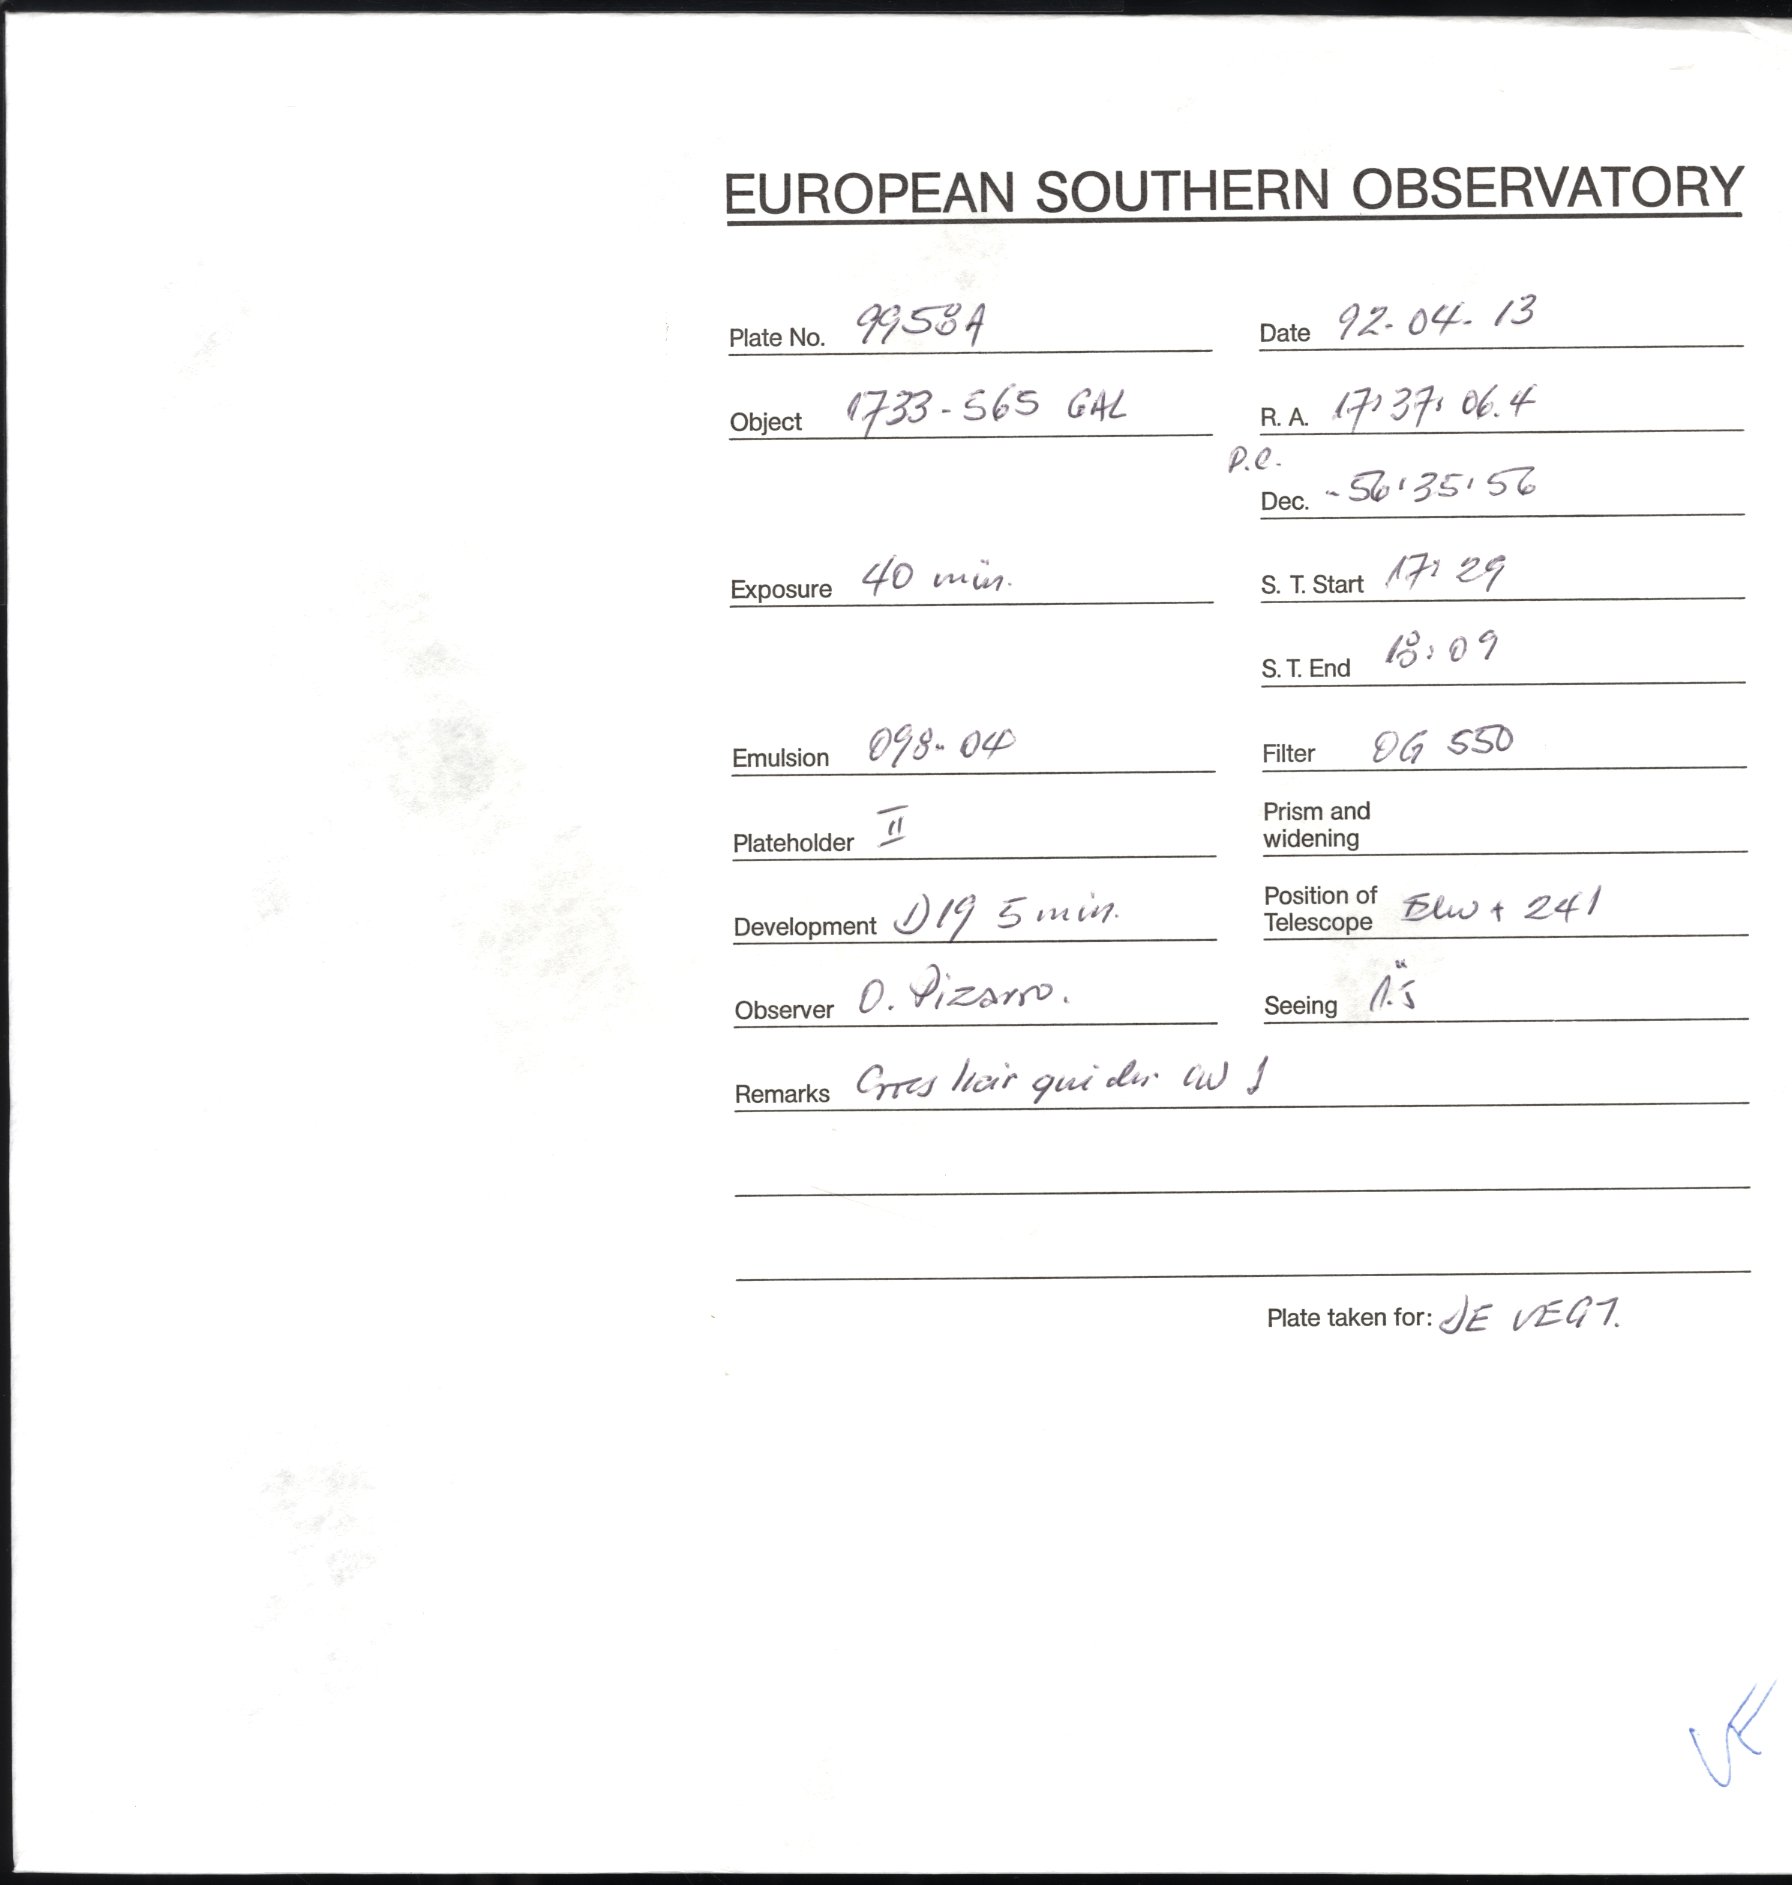 EUROPEAN SOUTHERN OBSERVATORY
Plate No. 9958A Date 92-04-13
Object 1733-565 GAL R. A. 17:37:06.4
P.C.
Dec. -56:35:56
Exposure 40 min. S. T. Start 17:29
S. T. End 18:09
Emulsion 098-04 Filter OG 550
Plateholder II Prism and
widening
Development D19 5 min. Position of
Telescope + 241
Observer O. Pizarro. Seeing 1.5"
Remarks hair guider
Plate taken for: DE VEGT.